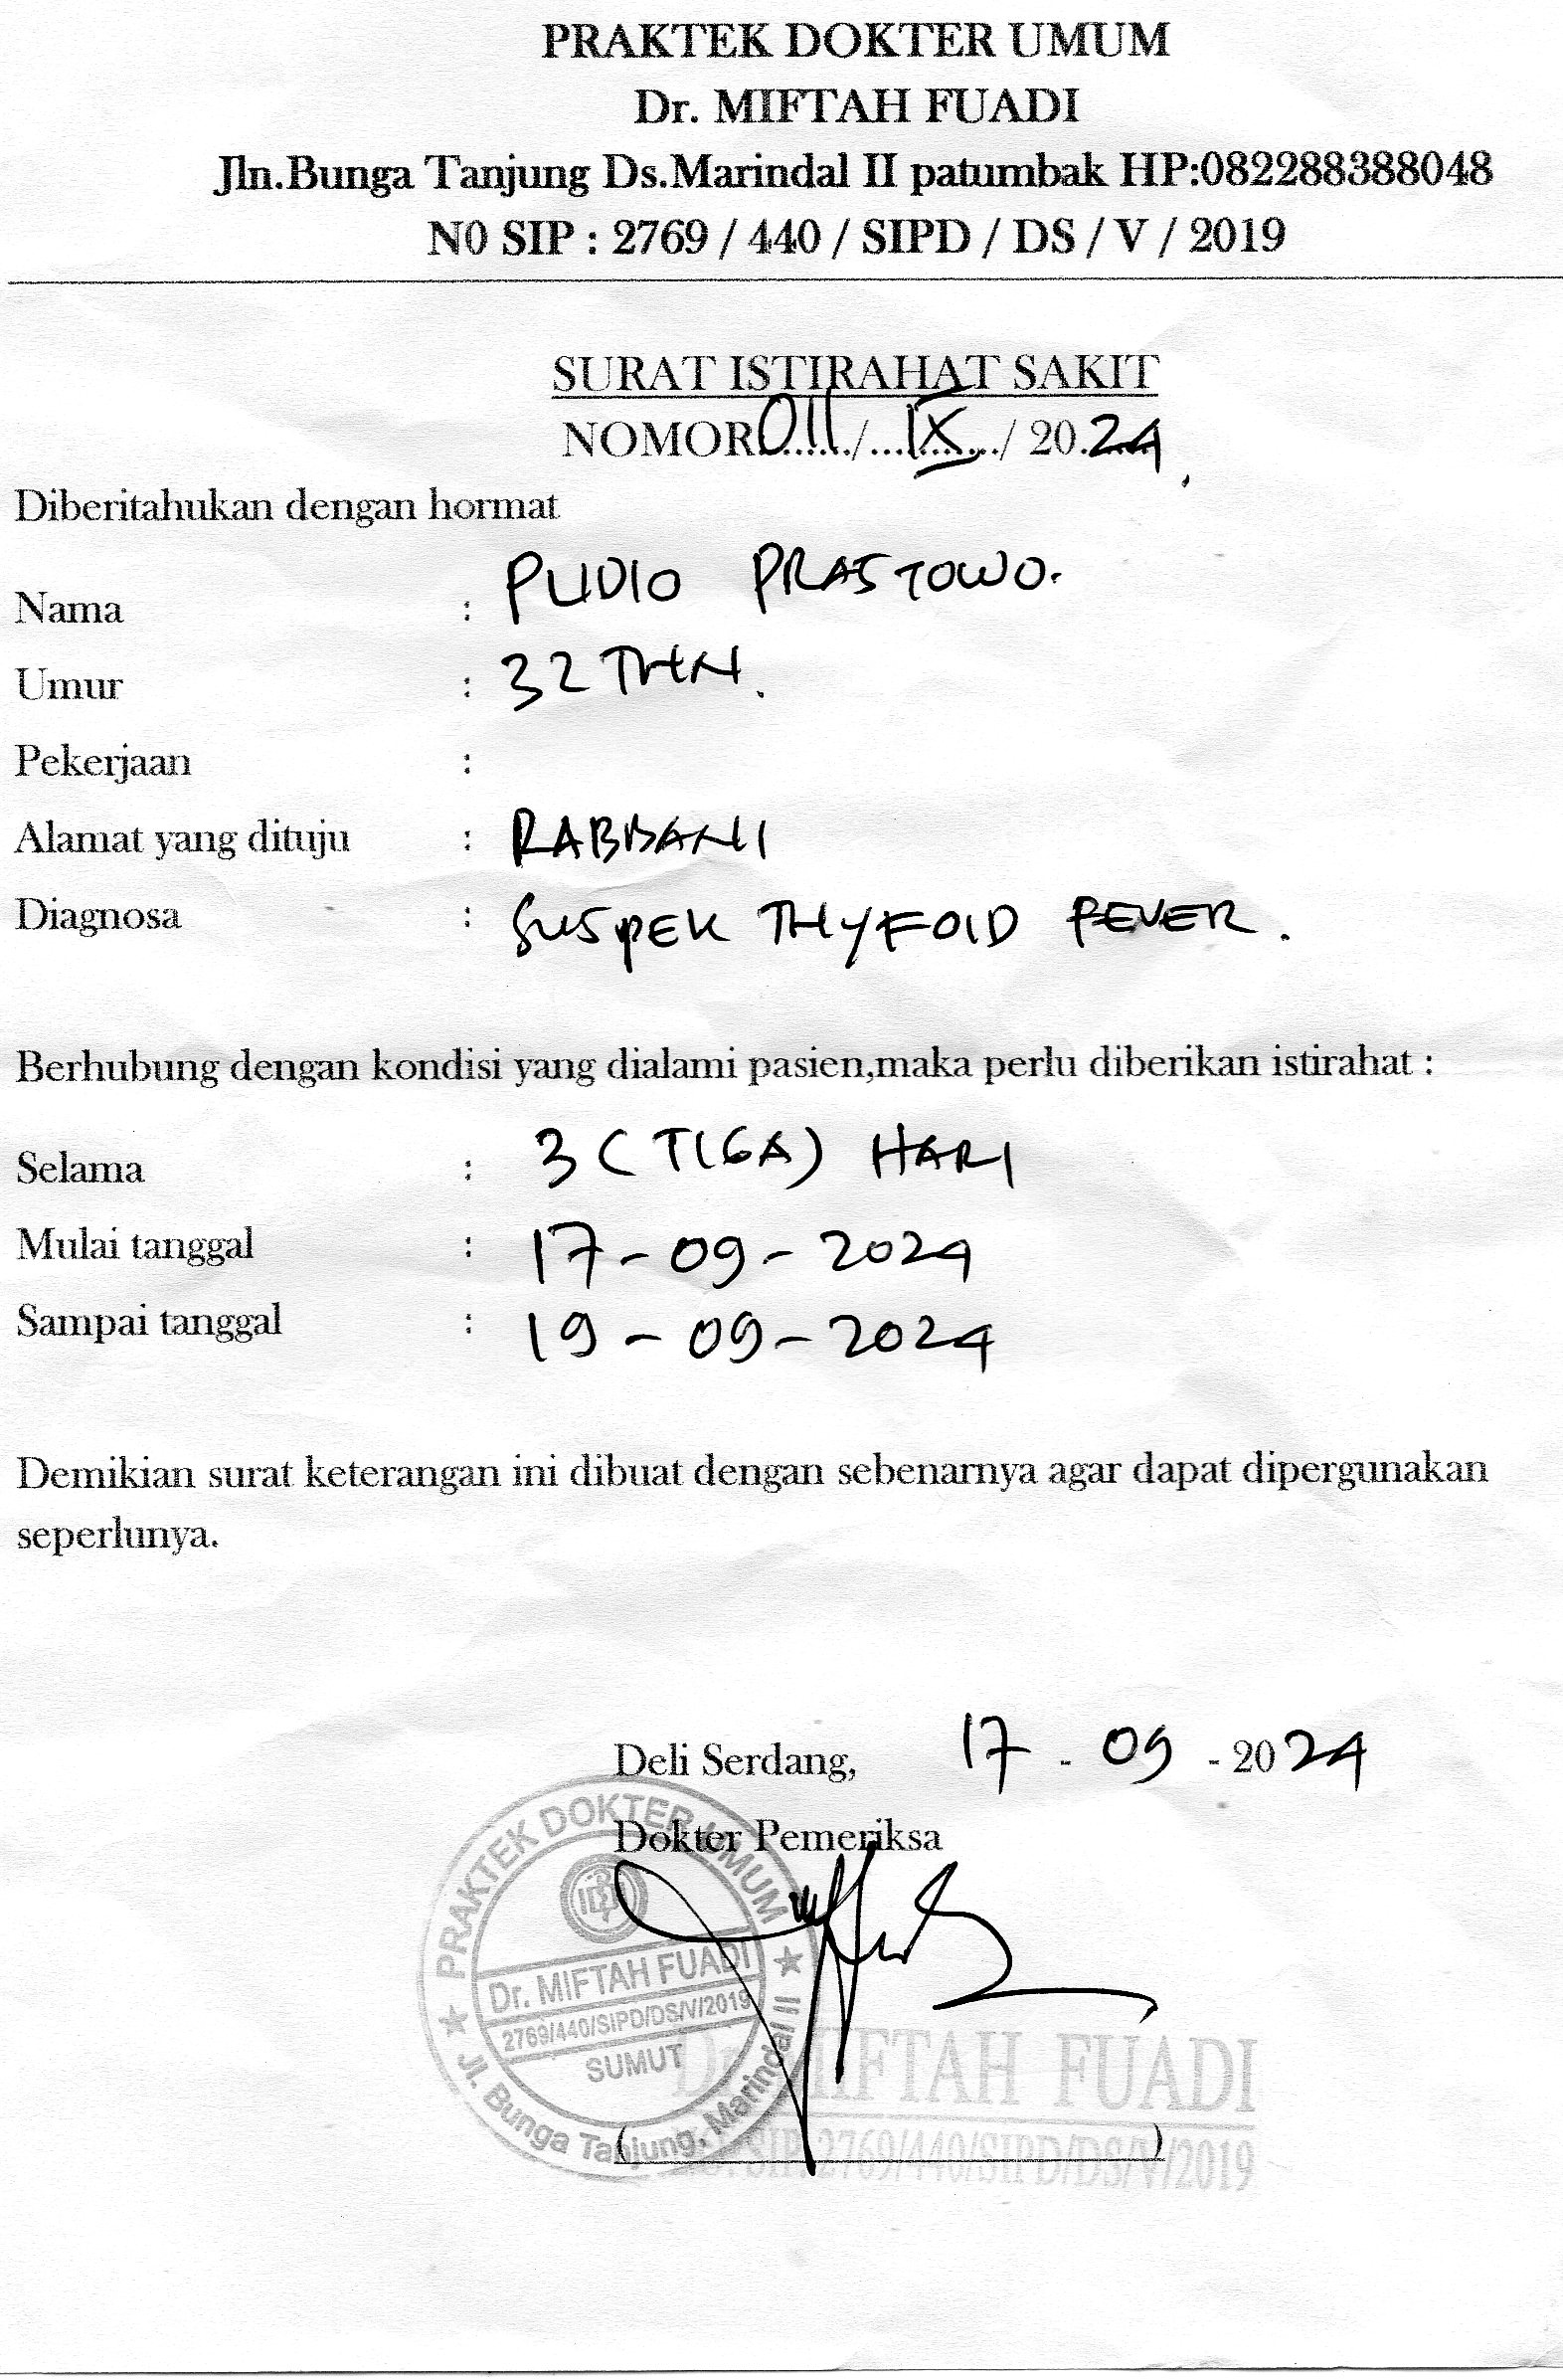 PRAKTEK DOKTER UMUM
Dr. MIFTAH FUADI
Jln.Bunga Tanjung Ds.Marindal II patumbak HP:082288388048
N0 SIP : 2769 / 440 / SIPD / DS / V / 2019
SURAT ISTIRAHAT SAKIT
NOMOR 011 / IX / 20.24
Diberitahukan dengan hormat
Nama : PUDIO PRASTOWO.
Umur : 32 THN.
Pekerjaan :
Alamat yang dituju : RABBANI
Diagnosa : SUSPEK THYFOID FEVER.
Berhubung dengan kondisi yang dialami pasien,maka perlu diberikan istirahat :
Selama : 3 (TIGA) HARI
Mulai tanggal : 17-09-2024
Sampai tanggal : 19-09-2024
Demikian surat keterangan ini dibuat dengan sebenarnya agar dapat dipergunakan
seperlunya.
Deli Serdang, 17 - 09 - 2024
Dokter Pemeriksa
PRAKTEK DOKTER UMUM
IDI
Dr. MIFTAH FUADI
2769/440/SIPD/DS/V/2019
SUMUT
Jl. Bunga Tanjung, Marindal II
Dr. MIFTAH FUADI
( )
SIP. 2769/440/SIPD/DS/V/2019